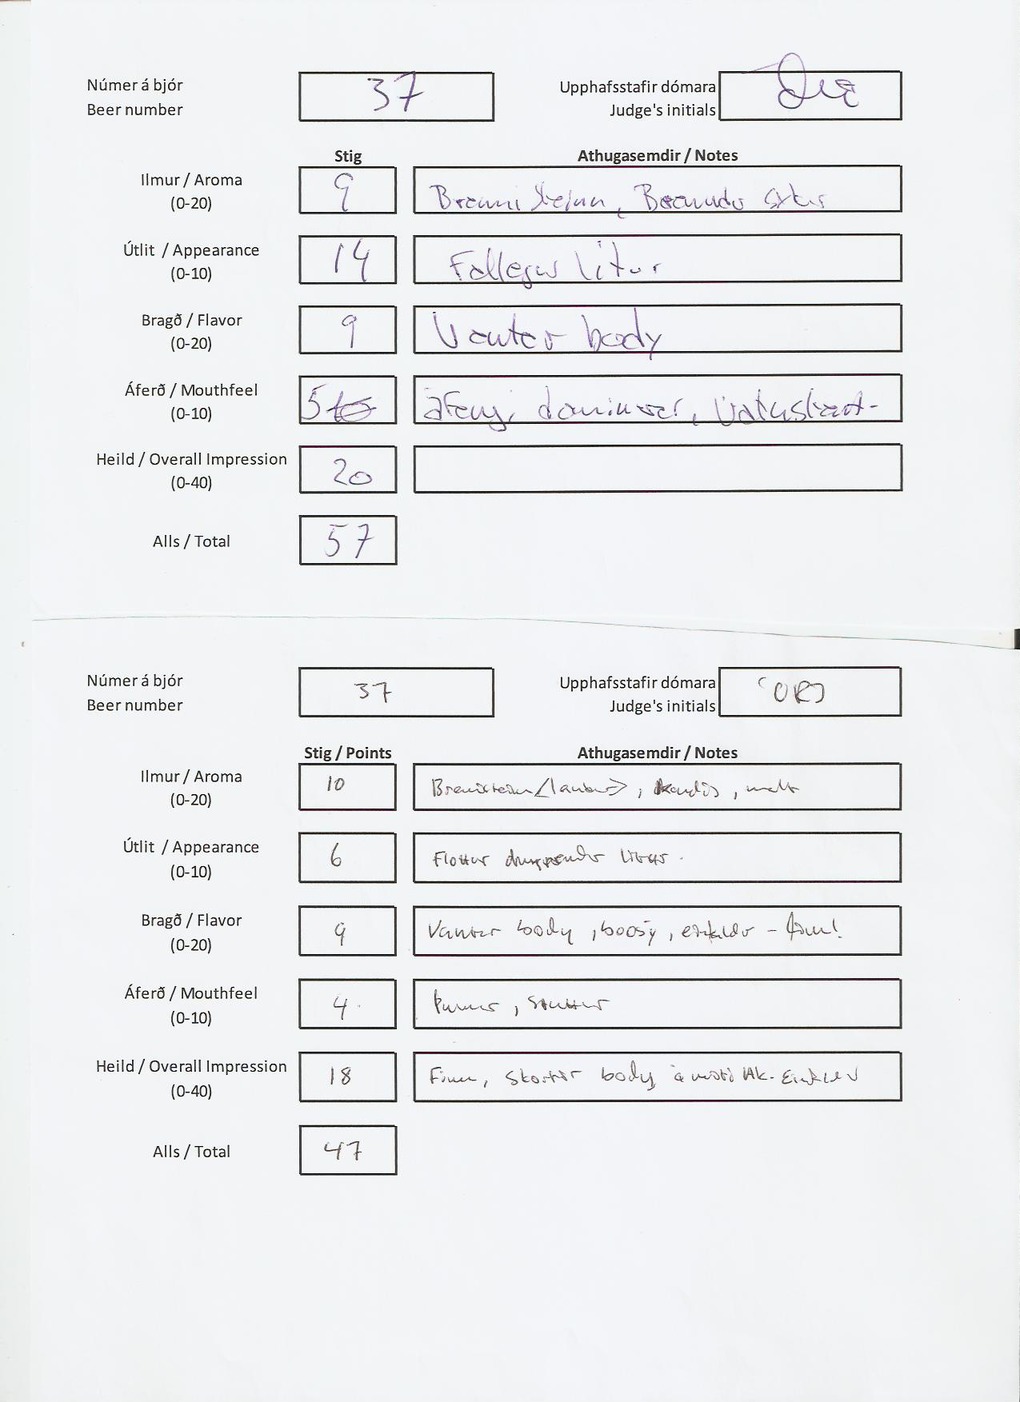 Númer á bjór
Beer number
37
Upphafsstafir dómara
Judge's initials
Stig
Athugasemdir / Notes
Ilmur / Aroma
(0-20)
9
Brennisteinn, Brenndur sykur
Útlit / Appearance
(0-10)
14
Fallegur litur
Bragð / Flavor
(0-20)
9
Vantar body
Áferð / Mouthfeel
(0-10)
5
áfengi dominerar,
Heild / Overall Impression
(0-40)
20
Alls / Total
57
Númer á bjór
Beer number
37
Upphafsstafir dómara
Judge's initials
Stig / Points
Athugasemdir / Notes
Ilmur / Aroma
(0-20)
10
Brennisteinn , kandís , malt
Útlit / Appearance
(0-10)
6
Flottur litur.
Bragð / Flavor
(0-20)
9
Vantar body , boosy , einfaldur - fínn!
Áferð / Mouthfeel
(0-10)
4.
Þunnur , stuttur
Heild / Overall Impression
(0-40)
18
Fínn, skortir body á móti alk. Einfaldur
Alls / Total
47